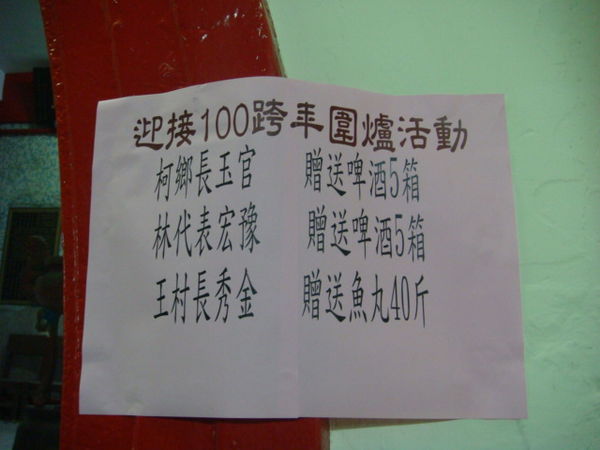 迎接100跨年圍爐活動
柯鄉長玉官 贈送啤酒5箱
林代表宏豫 贈送啤酒5箱
王村長秀金 贈送魚丸40斤